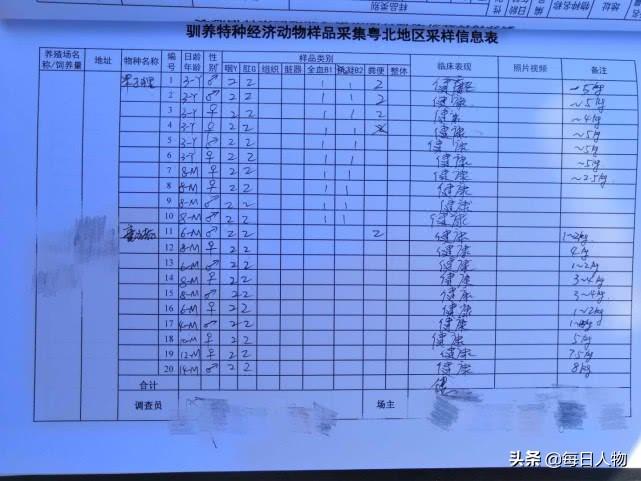 驯养特种经济动物样品采集粤北地区采样信息表
养殖场名称/饲养量 地址 物种名称 编号 日龄年龄 性别 样品类别 临床表现 照片视频 备注
咽Y 肛G 组织 脏器 全血B1 抗凝B2 粪便 整体
果子狸 1 3-Y ♂ 2 2 1 1 2 健康 ~5kg
2 3-Y ♂ 2 2 1 1 2 健康 ~5kg
3 3-Y ♀ 2 2 1 1 2 健康 ~4kg
4 3-Y ♀ 2 2 1 1 健康 ~5kg
5 3-Y ♂ 2 2 1 1 健康 ~5kg
6 3-Y ♀ 2 2 1 1 健康 ~5kg
7 8-M ♀ 2 2 1 1 健康 ~2.5kg
8 8-M ♀ 2 2 1 1 健康
9 8-M ♂ 2 2 1 1 健康
10 8-M ♂ 2 2 1 1 健康
11 6-M ♂ 2 2 2 健康 1~2kg
12 8-M ♀ 2 2 健康 4kg
13 6-M ♂ 2 2 健康 1~2kg
14 8-M ♀ 2 2 健康 3~4kg
15 8-M ♂ 2 2 健康 3~4kg
16 6-M ♀ 2 2 健康 1~2kg
17 ♂ 2 2 健康
18 ♀ 2 2 健康 5kg
19 12-M ♀ 2 2 健康 7.5kg
20 14-M ♂ 2 2 健康 8kg
合计
调查员 场主
头条 @每日人物